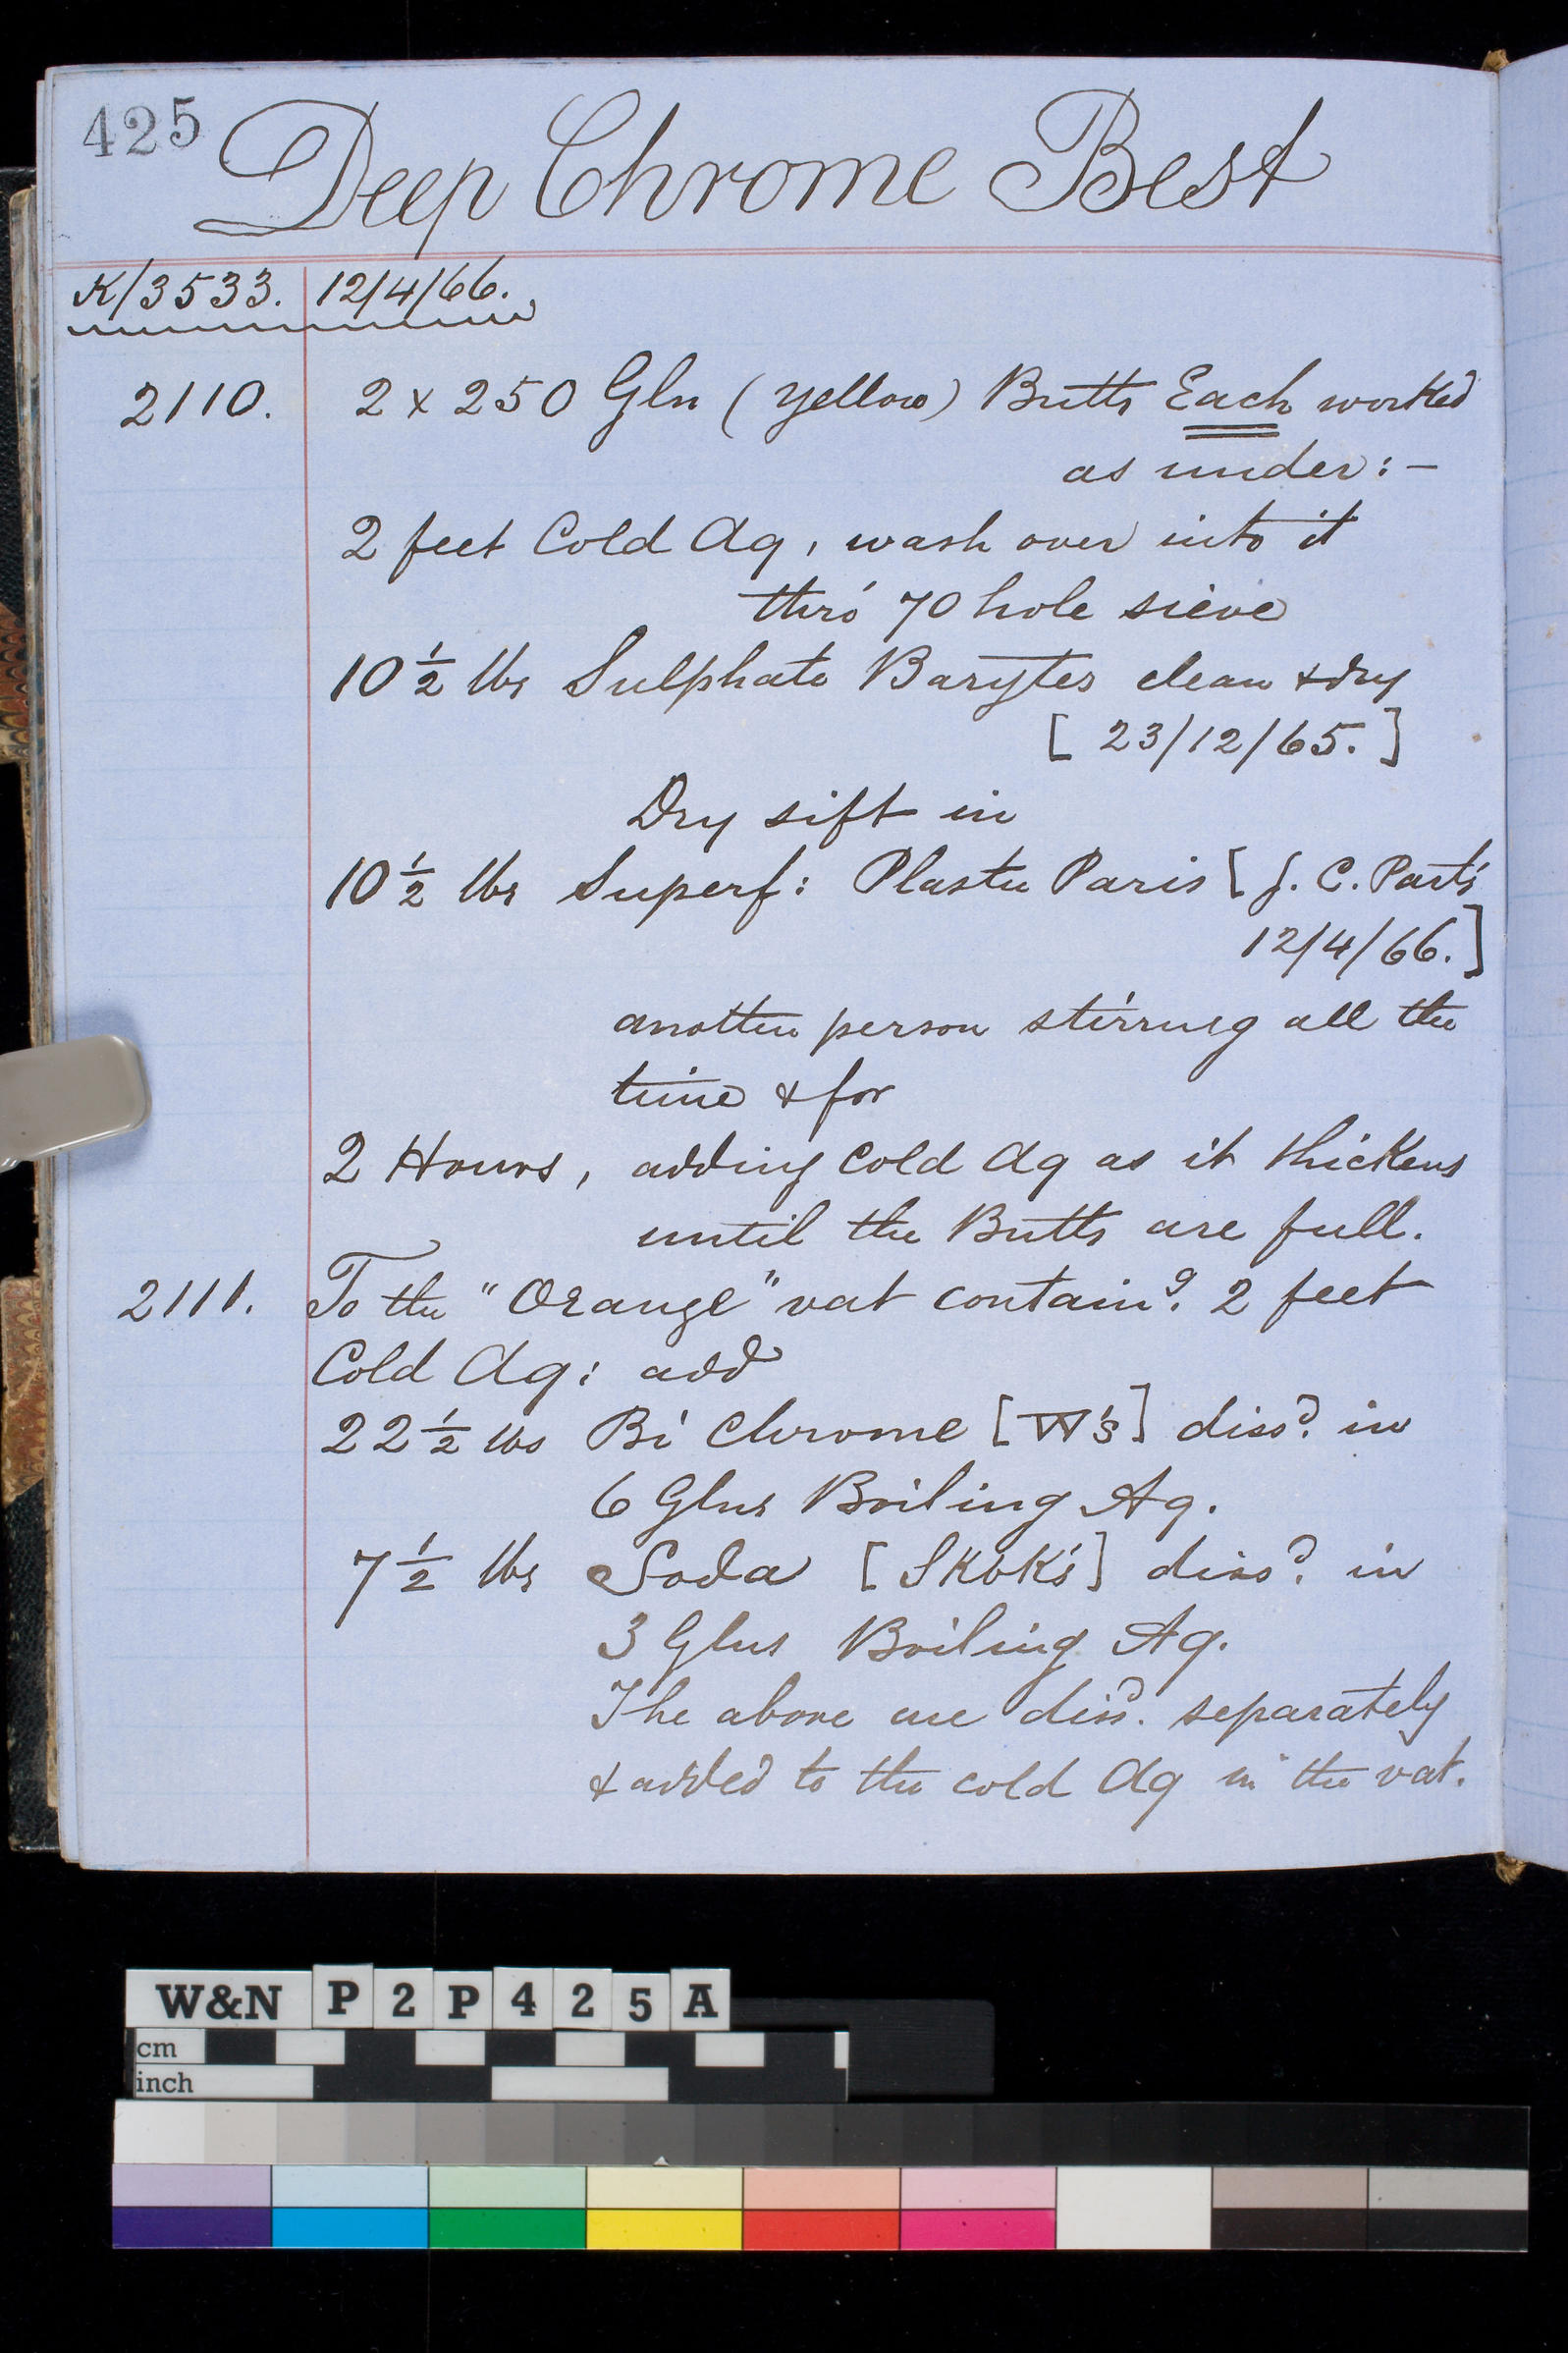 425
Deep Chrome Best
K/3533. 12/4/66.
2110. 2 x 250 Gln (Yellow) Butts Each worked
as under:-
2 feet Cold Aq, wash over into it
thro' 70 hole sieve
10 1/2 lbs Sulphate Barytes clean & dry
[23/12/65.]
Dry sift in
10 1/2 lbs Superf: Plaster Paris [J. C. Part's
12/4/66.]
another person stirring all the
time & for
2 Hours, adding Cold Aq as it thickens
until the Butts are full.
2111. To the "Orange" vat contain^g. 2 feet
Cold Aq: add
22 1/2 lbs Bi Chrome [W's] diss^d. in
6 Glns Boiling Aq.
7 1/2 lbs Soda in
3 Glns Boiling Aq.
The above are diss^d. separately
& added to the cold Aq in the vat.
W&N P2P425A
cm
inch